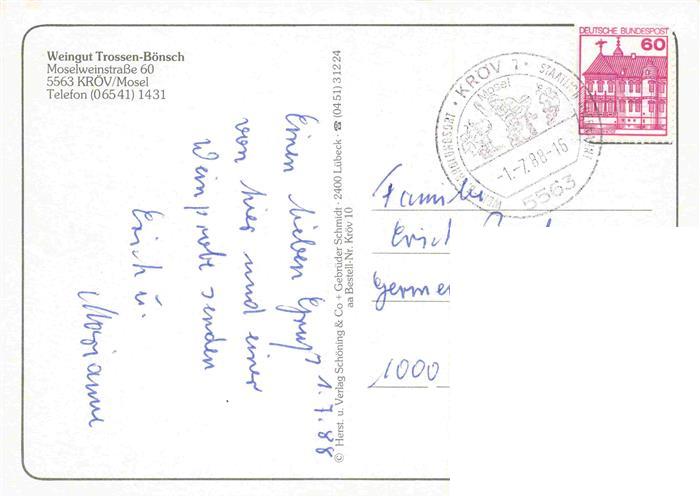 Weingut Trossen-Bönsch
Moselweinstraße 60
5563 KRÖV/Mosel
Telefon (06541) 1431
1.7.88
Einen lieben Gruß
von hier und einer
Weinprobe senden
Erich u.
Marianne
© Herst. u. Verlag Schöning & Co + Gebrüder Schmidt · 2400 Lübeck · ☎ (0451) 31224
aa Bestell-Nr. Kröv 10
DEUTSCHE BUNDESPOST
60
KRÖV 1
Mosel
-1.-7.88-16
5563
Familie
Erich
Germe
1000